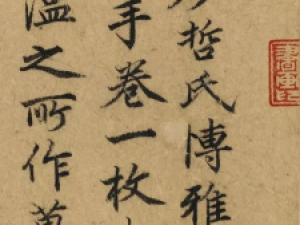 哲氏博雅
手卷一枚
温之所作